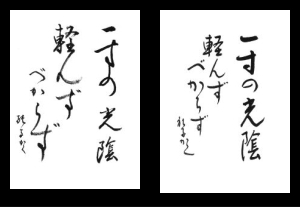 一寸の光陰
軽んず
べからず
一寸の光陰
軽んず
べからず